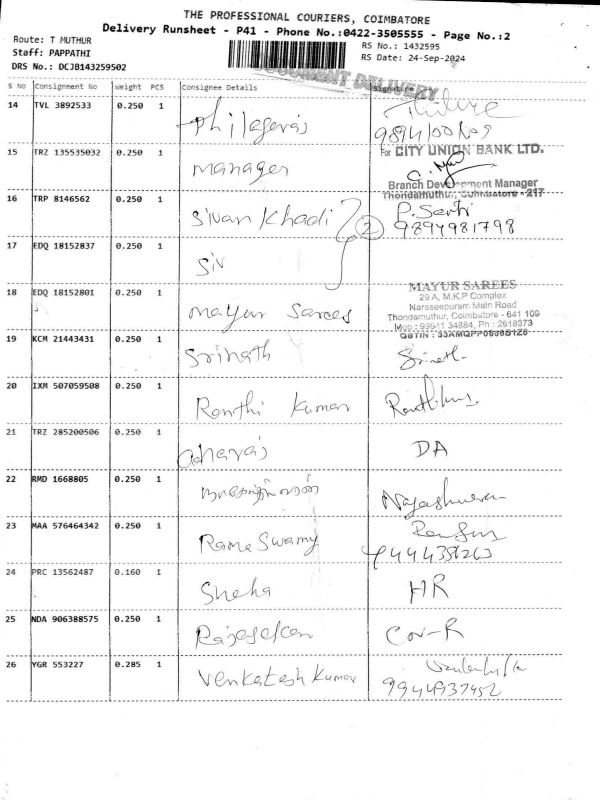 THE PROFESSIONAL COURIERS, COIMBATORE
Delivery Runsheet - P41 - Phone No.:0422-3505555 - Page No.:2
Route: T MUTHUR
RS No.: 1432595
Staff: PAPPATHI
RS Date: 24-Sep-2024
DRS No.: DCJB143259502
DOCUMENT DELIVERY
S No Consignment No Weight PCS Consignee Details Signature
14 TVL 3892533 0.250 1
15 TRZ 135535032 0.250 1 Manager
For CITY UNION BANK LTD.
Branch Development Manager
Thondamuthur, Coimbatore - 217
16 TRP 8146562 0.250 1 Sivan Khadi
2
9894981798
17 EDQ 18152837 0.250 1 Siv
18 EDQ 18152801 0.250 1 Mayur Sarees
MAYUR SAREES
29 A, M.K.P Complex
Naraseepuram Main Road
Thondamuthur, Coimbatore - 641 109
Mob : 99941 34884, Ph : 2618373
19 KCM 21443431 0.250 1 Srinath
20 IXM 507059508 0.250 1 Kumar
21 TRZ 285200506 0.250 1 DA
22 RMD 1668805 0.250 1
23 MAA 576464342 0.250 1 Rama Swamy
24 PRC 13562487 0.160 1 Sneha HR
25 NDA 906388575 0.250 1
26 YGR 553227 0.285 1 Venkatesh Kumar
9944937452